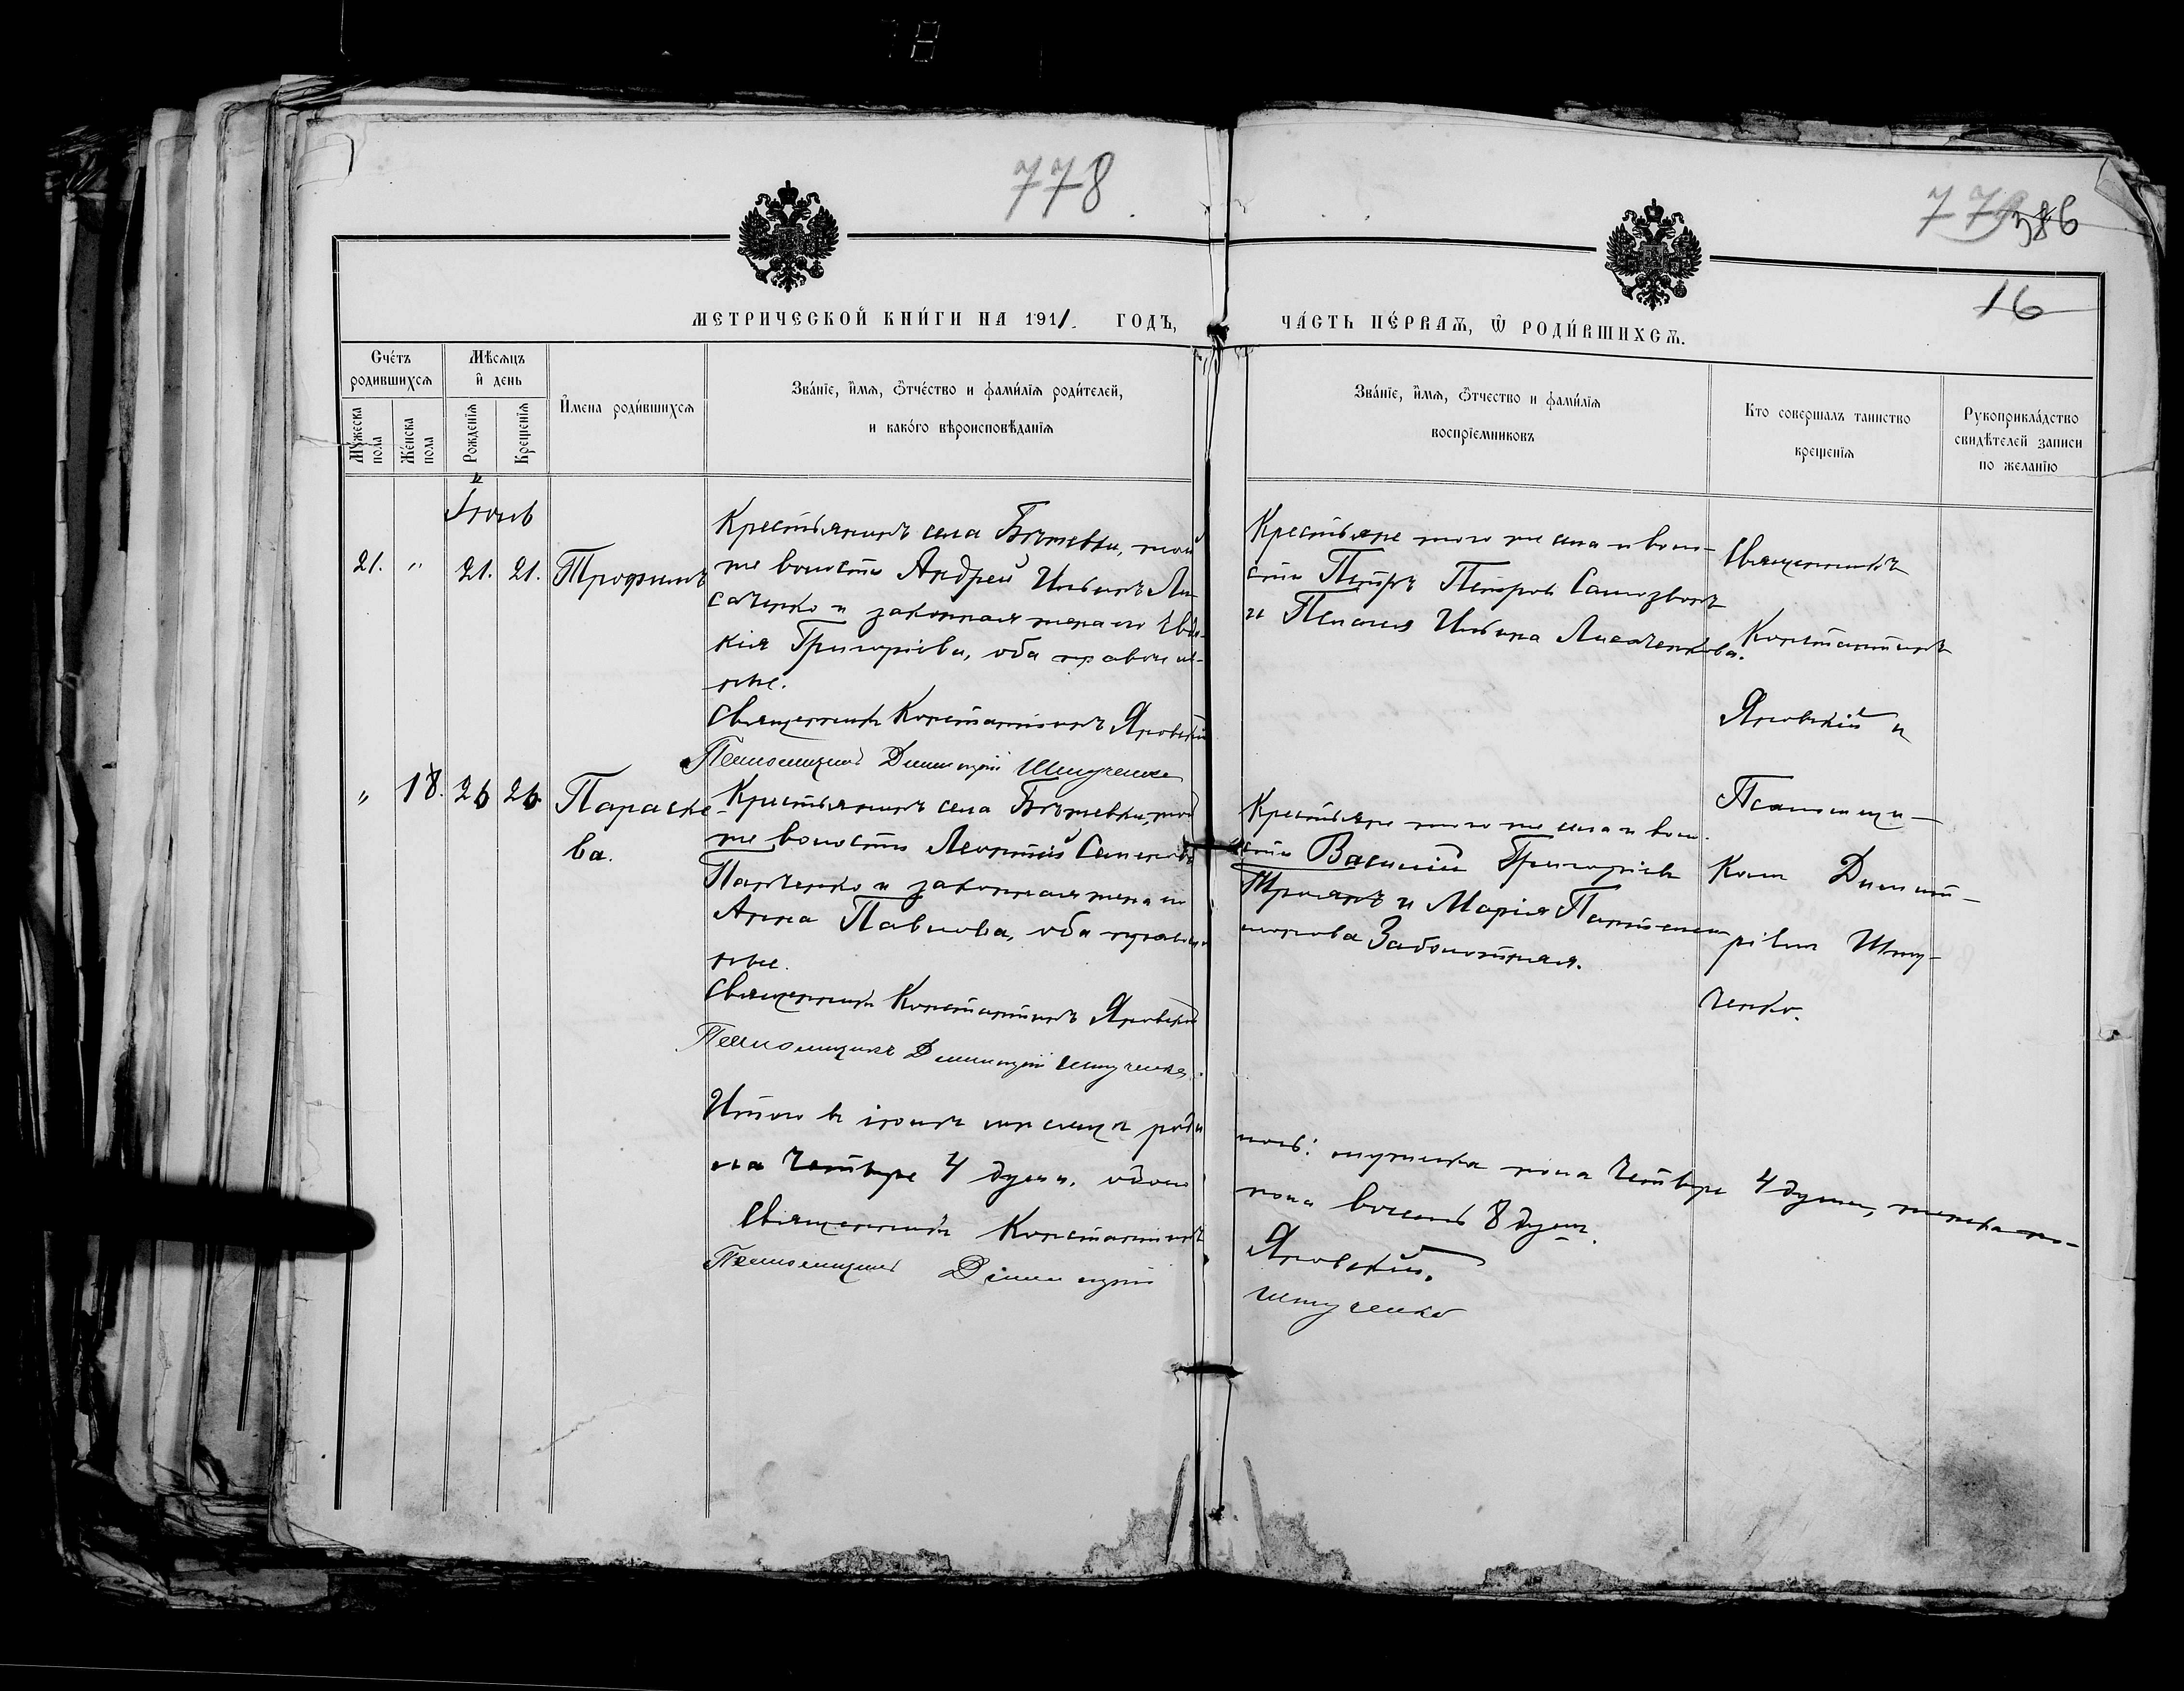 778
779
386
16
МЕТРИЧЕСКОЙ КНИ́ГИ НА 1911. ГОДЪ,
ЧА́СТЬ ПЕ́РВАѦ, Ѿ РОДИ́ВШИХСѦ.
Сче́тъ родившихсѧ
Мꙋ́жеска пола
Же́нска пола
Мѣ́сѧцъ и҆ день
Рожденїѧ
Крещенїѧ
И҆́мена роди́вшихсѧ
Зва́нїе, и҆́мѧ, ѻ҆́тчество и фами́лїѧ роди́телей,
и како́го вѣроисповѣ́данїѧ
Зва́нїе, и҆́мѧ, ѻ҆́тчество и фами́лїѧ
воспрїемниковъ
Кто совершалъ таинство
крещенїѧ
Рукоприкла́дство
свидѣ́телей записи
по желанїю
Іюнь
21. " 21. 21. Трофимъ
Крестьянинъ села Бѣжевки, той
же волости Андрей Ильинъ Ли-
саченко и законная жена его Евдо-
кія Григоріева, оба православ-
ные.
Священникъ Константинъ Яновскій
Псаломщикъ Димитрій Штученко
Крестьяне того же села и воло-
сти Петръ Петровъ Самозвонъ
и Пелагія Ильина Лисаченкова.
Священникъ
Константинъ
Яновскій и
Псаломщи-
комъ Димит-
ріемъ Шту-
ченко.
" 18. 26 26. Параске-
ва.
Крестьянинъ села Бѣжевки, той
же волости Леонтій Семеновъ
Панченко и законная жена его
Анна Павлова, оба православ
ные.
Священникъ Константинъ Яновскій
Псаломщикъ Димитрій Штученко.
Крестьяне того же села и воло-
сти Василій Григоріевъ
Троянъ и Марія Пантелеи-
монова Заболотная.
Итого въ іюнѣ мѣсяцѣ роди
лось: мужеска пола четыре 4 души, женска по-
ла четыре 4 души, обоего
пола восемь 8 душъ.
Священникъ Константинъ Яновскій.
Псаломщикъ Димитрій Штученко